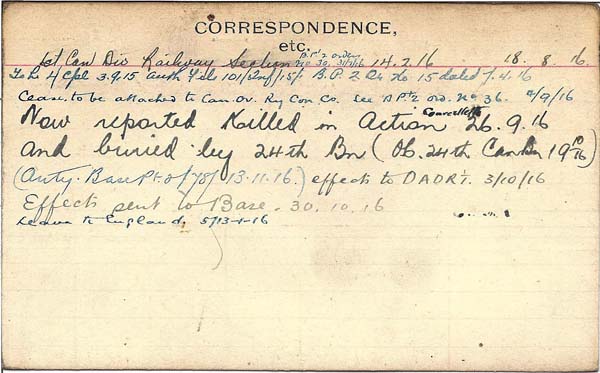 CORRESPONDENCE,
etc.
1st Can Div Railway Section B.Pt 2 orders No 30, 31/7/16 14.2.16 18. 8. 16.
To be L/Cpl 3.9.15 Auth B.P. 2 Or No 15 dated 7.4.16
Cease, to be attached to Can. Ov. Ry Con Co. See B Pt 2 ord. No 36. 2/9/16
Now reported Killed in Action Cancelled 26.9.16
and buried by 24th Bn (Ob. 24th Can Bn 19 P/16)
(Auty. Base Pt. 0/78/ 13.11.16.) effects to DADRT. 3/10/16
Effects sent to Base. 30.10.16
Leave to England, 5/13-1-16